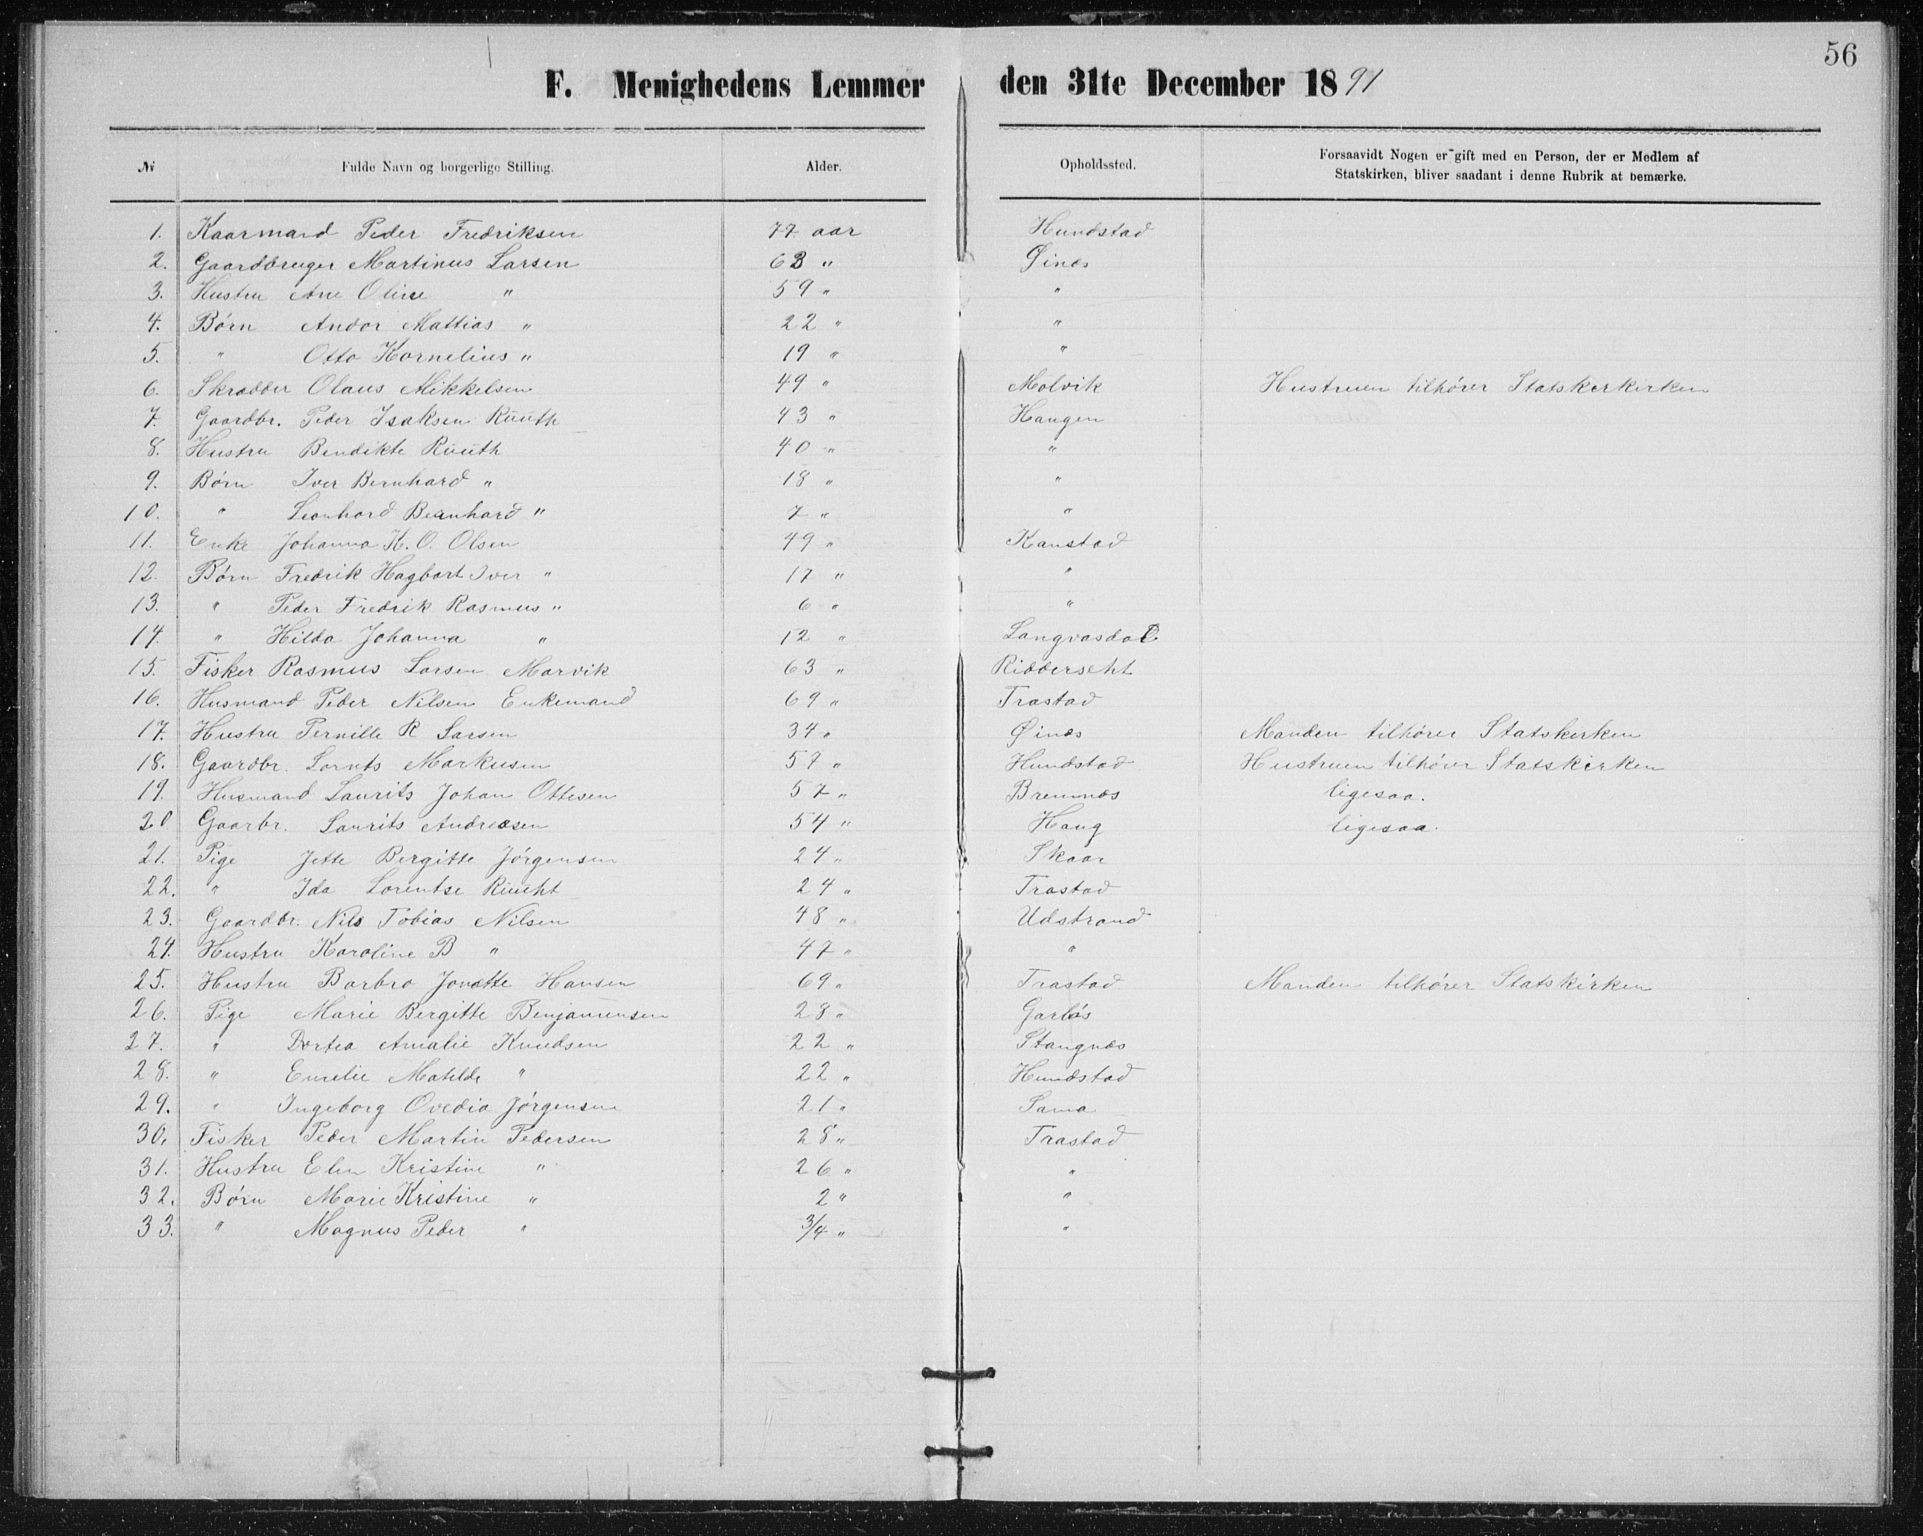 56
F. Menighedens Lemmer den 31te December 1891
№ Fulde Navn og borgerlige Stilling. Alder. Opholdssted. Forsaavidt Nogen er gift med en Person, der er Medlem af
Statskirken, bliver saadant i denne Rubrik at bemærke.
1. Kaarmand Peder Fredriksen 77 aar Hundstad
2. Gaardbruger Martinus Larsen 63 " Øinæs
3. Hustru Ane Oline " 59 " "
4. Børn Andor Mattias " 22 " "
5. " Otto Kornelius " 19 " "
6. Skrædder Olaus Mikkelsen 49 " Molvik Hustruen tilhører Statskerkerken
7. Gaardbr. Peder Isaksen Ruuth 43 " Haugen
8. Hustru Bendikte Ruuth 40 " "
9. Børn Iver Bernhard " 18 " "
10. " Leonhard Bernhard " 7 " "
11. Enke Johanna K. O. Olsen 49 " Kanstad
12. Børn Fredrik Hagbart Iver " 17 " "
13. " Peder Fredrik Rasmus " 6 " "
14. " Hilda Johanna " 12 " Langvasdal
15. Fisker Rasmus Larsen Marvik 63 " Ridderseht
16. Husmand Peder Nilsen Enkemand 69 " Trastad
17. Hustru Pernille R Larsen 34 " Øinæs Manden tilhører Statskerken
18. Gaardbr. Lornts Markusen 57 " Hundstad Hustruen tilhører Statskirken
19. Husmand Laurits Johan Ottesen 57 " Bremnæs ligesaa.
20. Gaarbr. Laurits Andreasen 54 " Haug ligesaa.
21. Pige Jette Bergitte Jørgensen 24 " Skaar
22. " Ida Lorentse Ruucht 24 " Trastad
23. Gaardbr. Nils Tobias Nilsen 48 " Udstrand
24. Hustru Karoline B " 47 " "
25. Hustru Barbro Jonette Hansen 69 " Trastad Manden tilhører Statskirken
26. Pige Marie Bergitte Benjaminsen 28 " Garløs
27. " Dortea Amalie Knudsen 22 " Stangnæs
28. " Emelie Matilde " 22 " Hundstad
29. " Ingeborg Ovedia Jørgensen 21 " Sama
30. Fisker Peder Martin Pedersen 28 " Trastad
31. Hustru Elen Kristine " 26 " "
32. Børn Marie Kristine " 2 " "
33. " Magnus Peder " 3/4 " "